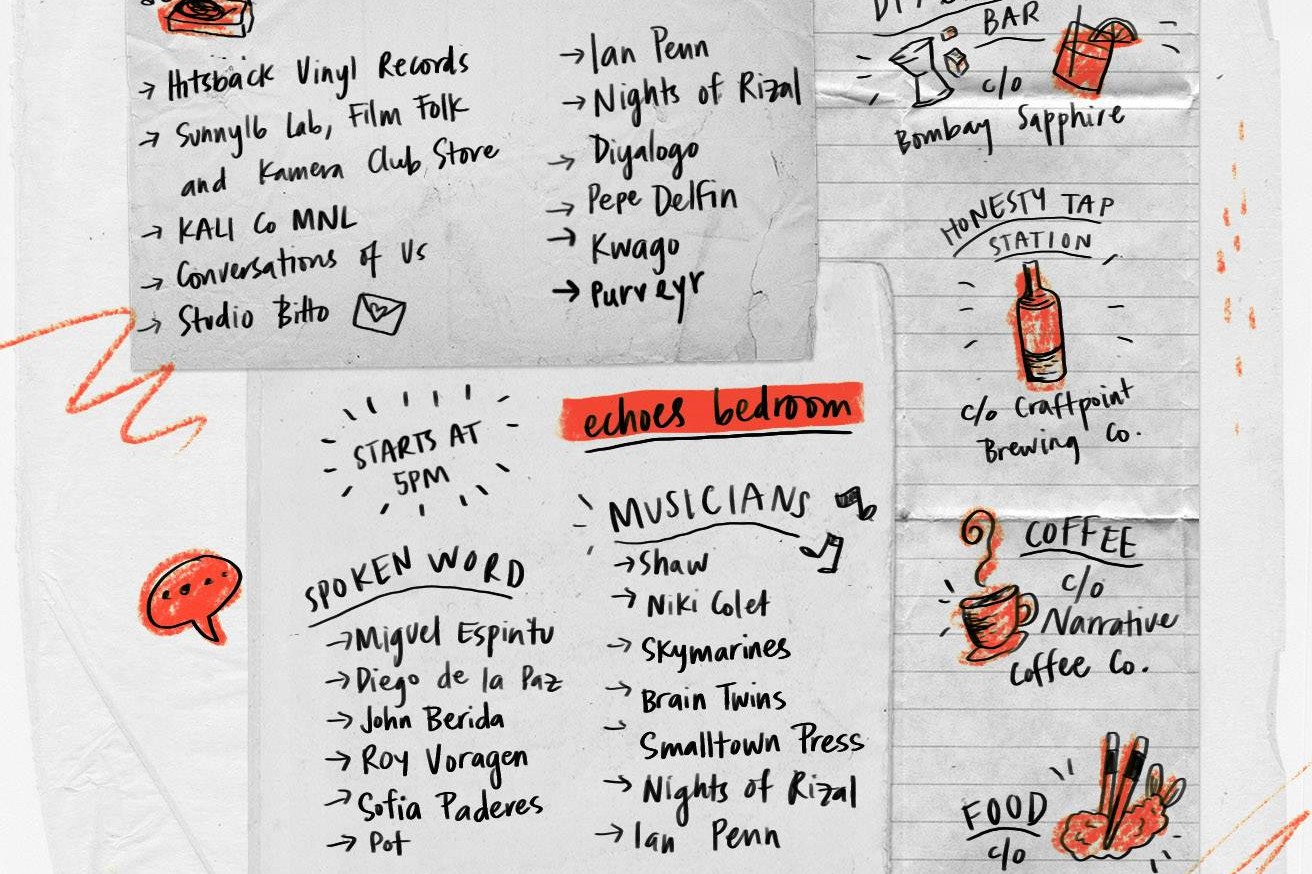 → Hitsback Vinyl Records
→ Sunny16 Lab, Film Folk
and Kamera Club Store
→ KALI Co MNL
→ Conversations of Us
→ Studio Bitto
→ Ian Penn
→ Nights of Rizal
→ Diyalogo
→ Pepe Delfin
→ Kwago
→ Purveyr
BAR
c/o
Bombay Sapphire
HONESTY TAP
STATION
c/o Craftpoint
Brewing Co.
COFFEE
c/o
Narrative
Coffee Co.
FOOD
c/o
STARTS AT
5PM
echoes bedroom
SPOKEN WORD
→ Miguel Espintu
→ Diego de la Paz
→ John Berida
→ Roy Voragen
→ Sofia Paderes
→ Pot
MUSICIANS
→ Shaw
→ Niki Colet
→ Skymarines
→ Brain Twins
→ Smalltown Press
→ Nights of Rizal
→ Ian Penn